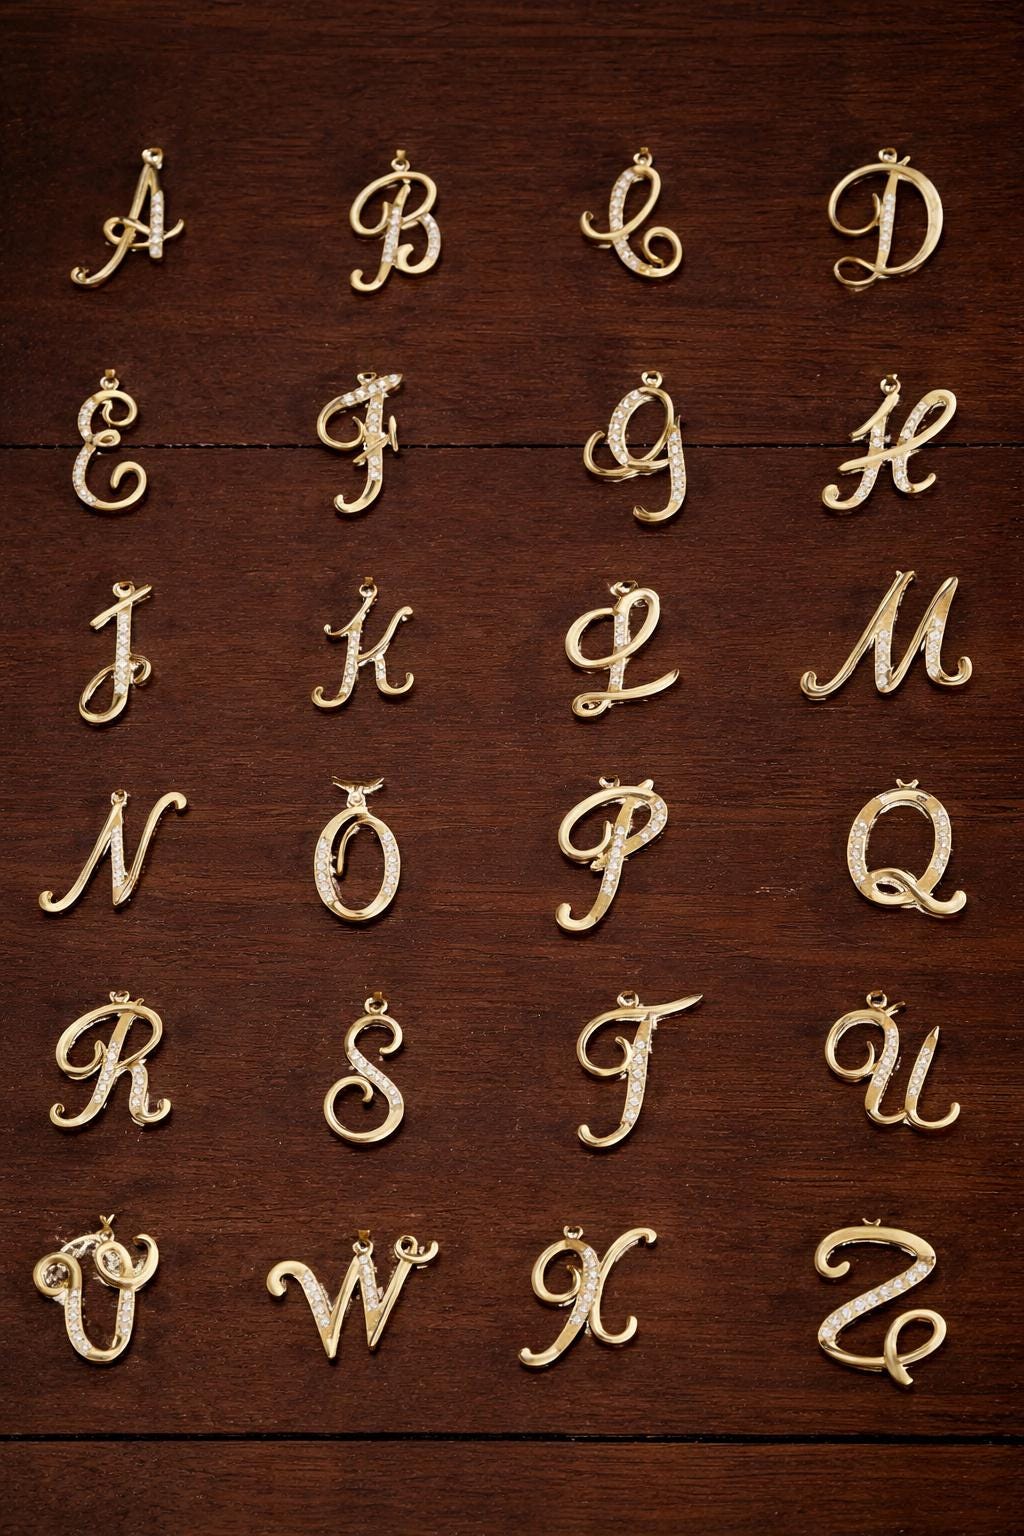 A B C D
E F G H
J K L M
N O P Q
R S T U
V W X Z